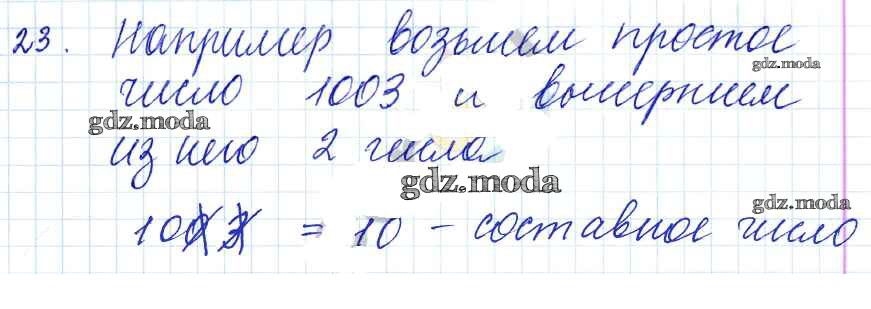 23. Например возьмем простое
gdz.moda
число 1003 и вычеркнем
gdz.moda
из него 2 числа
gdz.moda
gdz.moda
1003 = 10 - составное число
gdz.moda